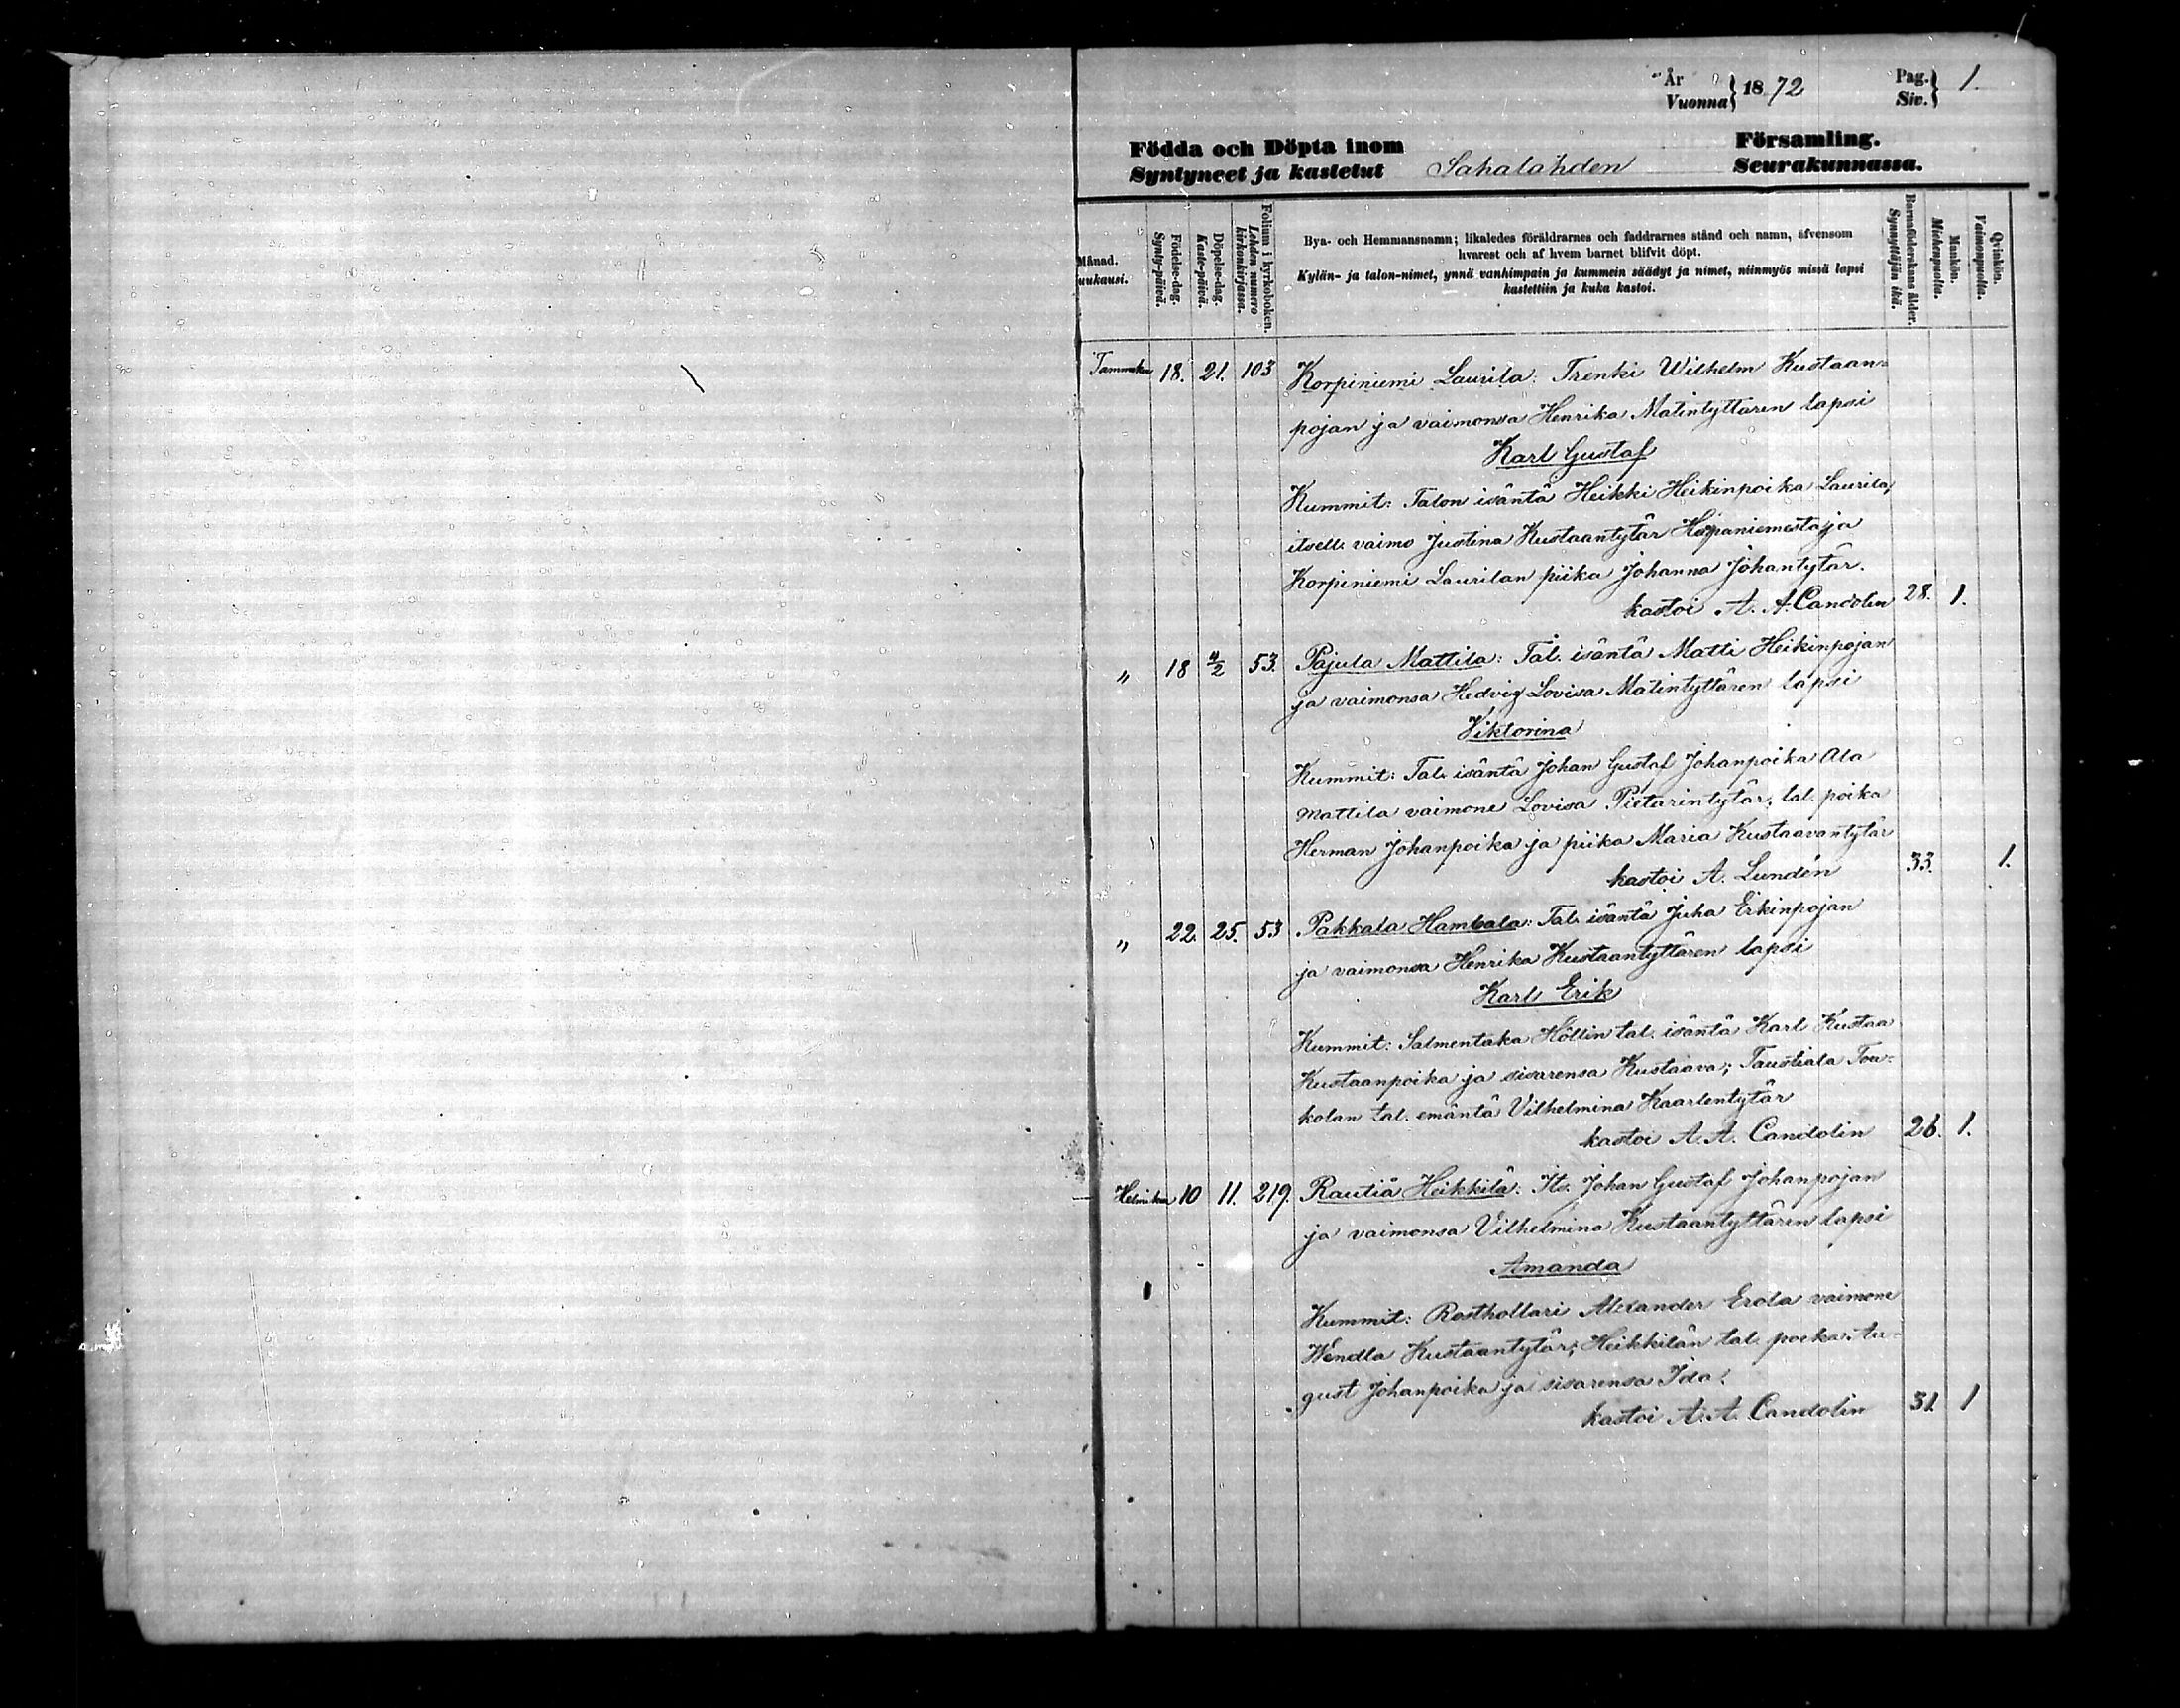 År
Vuonna } 1872 Pag.
Siv. } 1.
Födda och Döpta inom Församling.
Syntyneet ja kastetut Sahalahden Seurakunnassa.
Månad.
uukausi.
Födelse-dag.
Synty-päivä.
Döpelse-dag.
Kaste-päivä.
Folium i kyrkoboken.
Lehden numero
kirkonkirjassa.
Bya- och Hemmansnamn; likaledes föräldrarnes och faddrarnes stånd och namn, äfvensom
hvarest och af hvem barnet blifvit döpt.
Kylän- ja talon-nimet, ynnä vanhimpain ja kummein säädyt ja nimet, niinmyös missä lapsi
kastettiin ja kuka kastoi.
Barnaföderskans ålder.
Synnyttäjän ikä.
Mankön.
Miehenpuolta.
Qvinkön.
Vaimonpuolta.
Tammiku 18. 21. 103 Korpiniemi Laurila: Trenki Wilhelm Kustaan-
pojan ja vaimonsa Henrika Matintyttären lapsi
Karl Gustaf
Kummit: Talon isäntä Heikki Heikinpoika Laurila,
itsell. vaimo Justina Kustaantytär ja
Korpiniemi Laurilan piika Johanna Johantytär.
kastoi A. A. Candolin 28. 1.
" 18 4/2 53. Pajula Mattila: Tal. isäntä Matti Heikinpojan
ja vaimonsa Hedvig Lovisa Matintyttären lapsi
Viktorina
Kummit: Tal. isäntä Johan Gustaf Johanpoika Ala
Mattila vaimone Lovisa Pietarintytär, tal. poika
Herman Johanpoika ja piika Maria Kustaavantytär
kastoi A. Lundén 33. 1.
" 22. 25. 53 Pakkala Hambala: Tal. isäntä Juha Erkinpojan
ja vaimonsa Henrika Kustaantyttären lapsi
Karl Erik
Kummit: Salmentaka Höllin tal. isäntä Karl Kustaa
Kustaanpoika ja sisarensa Kustaava; Taustiala Tou-
kolan tal. emäntä Vilhelmina Kaarlentytär
kastoi A. A. Candolin 26. 1.
Helmikuu 10 11. 219. Rautiä Heikkilä: Its. Johan Gustaf Johanpojan
ja vaimonsa Vilhelmina Kustaantyttären lapsi
Amanda
Kummit: Rosthollari Alexander Erola vaimone
Wendla Kustaantytär; Heikkilän tal. poika Au-
gust Johanpoika ja sisarensa Ida.
kastoi A. A. Candolin 31. 1